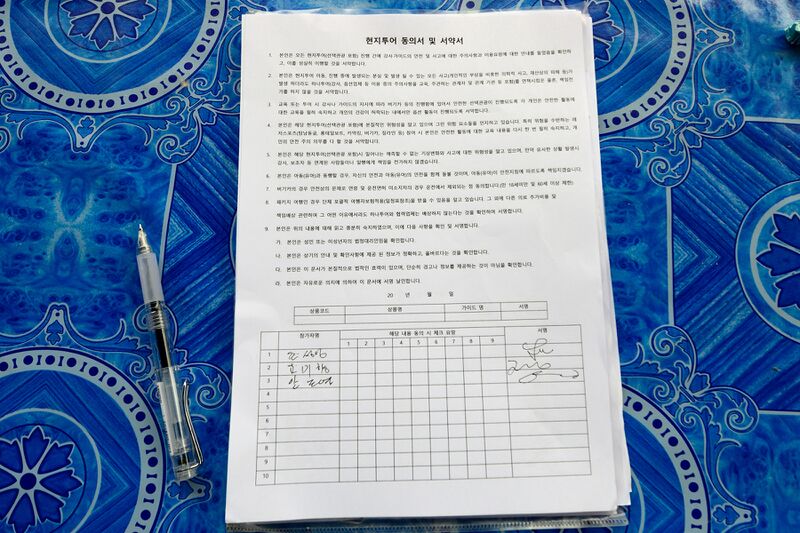 현지투어 동의서 및 서약서
1. 본인은 모든 현지투어(선택관광 포함) 진행 간에 강사·가이드의 안전 및 사고에 대한 주의사항과 이용요령에 대한 안내를 들었음을 확인하
고, 이를 성실히 이행할 것을 서약합니다.
2. 본인은 현지투어 이동, 진행 중에 발생되는 분실 및 발생 될 수 있는 모든 사고(개인적인 부상을 비롯한 의외적 사고, 재산상의 피해 등)가
발생 하더라도 하나투어/강사, 옵션업체 등 이용 중의 주의사항을 교육, 주관하는 관계자 및 관계 기관 등 포함)를 면책시킴은 물론, 책임전
가를 하지 않을 것을 서약합니다.
3. 교육 또는 투어 시 강사나 가이드의 지시에 따라 버기카 등의 진행함에 있어서 안전한 선택관광이 진행되도록 이 개인은 안전한 활동에
대한 교육을 필히 숙지하고 개인의 건강이 허락되는 내에서만 옵션 활동이 진행되도록 서약합니다.
4. 본인은 해당 현지투어(선택관광 포함)에 본질적인 위험성을 알고 있으며 그런 위험 요소들을 인지하고 있습니다. 특히 위험을 수반하는 레
져스포츠(탐남동굴, 롱테일보트, 카약킹, 버기카, 짚라인 등) 참여 시 본인은 안전한 활동에 대한 교육 내용을 다시 한 번 필히 숙지하고, 개
인의 안전 주의 의무를 다 할 것을 서약합니다.
5. 본인은 해당 현지투어(선택관광 포함)시 일어나는 예측할 수 없는 기상변화와 사고에 대한 위험성을 알고 있으며, 만약 유사한 상황 발생시
강사, 보조자 등 연계된 사람들이나 일행에게 책임을 전가하지 않겠습니다.
6. 본인은 아동(유아)과 동행할 경우, 자신의 안전과 아동(유아)의 안전을 함께 돌볼 것이며, 아동(유아)이 안전지침에 따르도록 책임지겠습니다.
7. 버기카의 경우 안전상의 문제로 연령 및 운전면허 미소지자의 경우 운전에서 제외되는 점 동의합니다.(만 16세미만 및 60세 이상 제한)
8. 패키지 여행인 경우 단체 포괄적 여행자보험적용(일정표참조)을 받을 수 있음을 알고 있습니다. 그 외에 다른 의료 추가비용 및
책임배상 관련하여 그 어떤 이유에서라도 하나투어와 협력업체는 배상하지 않는다는 것을 확인하여 서명합니다.
9. 본인은 위의 내용에 대해 읽고 충분히 숙지하였으며, 이에 다음 사항을 확인 및 서명합니다.
가. 본인은 성인 또는 미성년자의 법정대리인임을 확인합니다.
나. 본인은 상기의 안내 및 확인사항에 제공 된 정보가 정확하고, 올바르다는 것을 확인합니다.
다. 본인은 이 문서가 본질적으로 법적인 효력이 있으며, 단순히 경고나 정보를 제공하는 것이 아님을 확인합니다.
라. 본인은 자유로운 의지에 의하여 이 문서에 서명 날인합니다.
20 년 월 일
상품코드 상품명 가이드 명 서명
참가자명 해당 내용 동의 시 체크 요망 서명
1 2 3 4 5 6 7 8 9
1
2
3
4
5
6
7
8
9
10